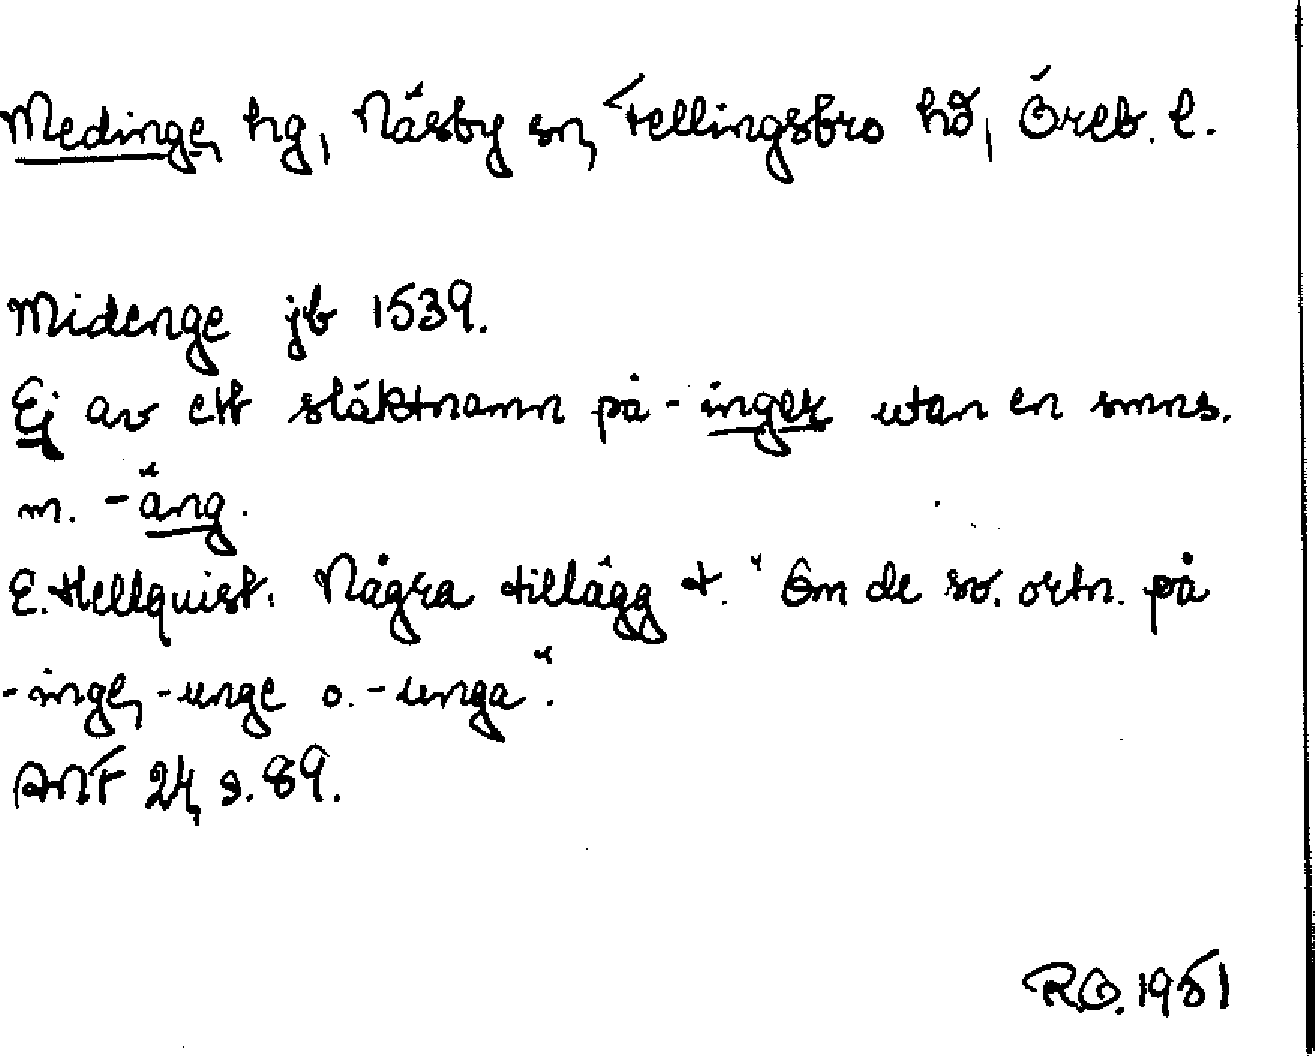 Medinge, hg, Näsby sn, Fellingsbro hd, Öreb. l.
Midenge jb 1539.
Ej av ett släktnamn på -inger utan en smns.
m. -äng.
E. Hellquist. Några tillägg t. "Om de sv. ortn. på
-inge, -unge o. -unga".
ANF 24, s. 89.
R.O. 1951